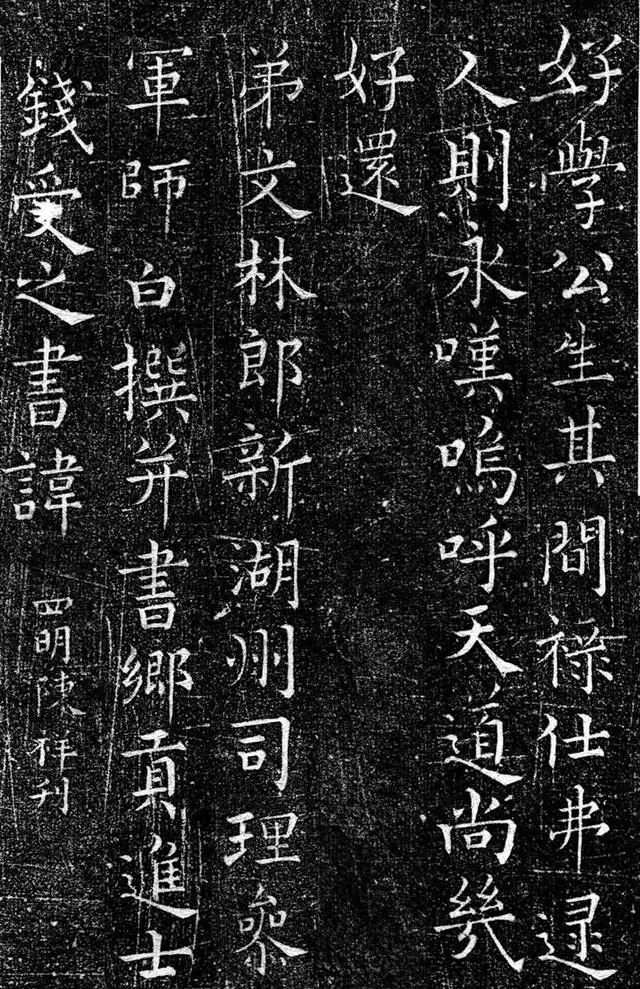 好學公生其間祿仕弗逯
人則永嘆嗚呼天道尚㡬
好還
弟文林郎新湖州司理叅
軍師白撰并書鄉貢進士
錢受之書諱 四明陳祥刋